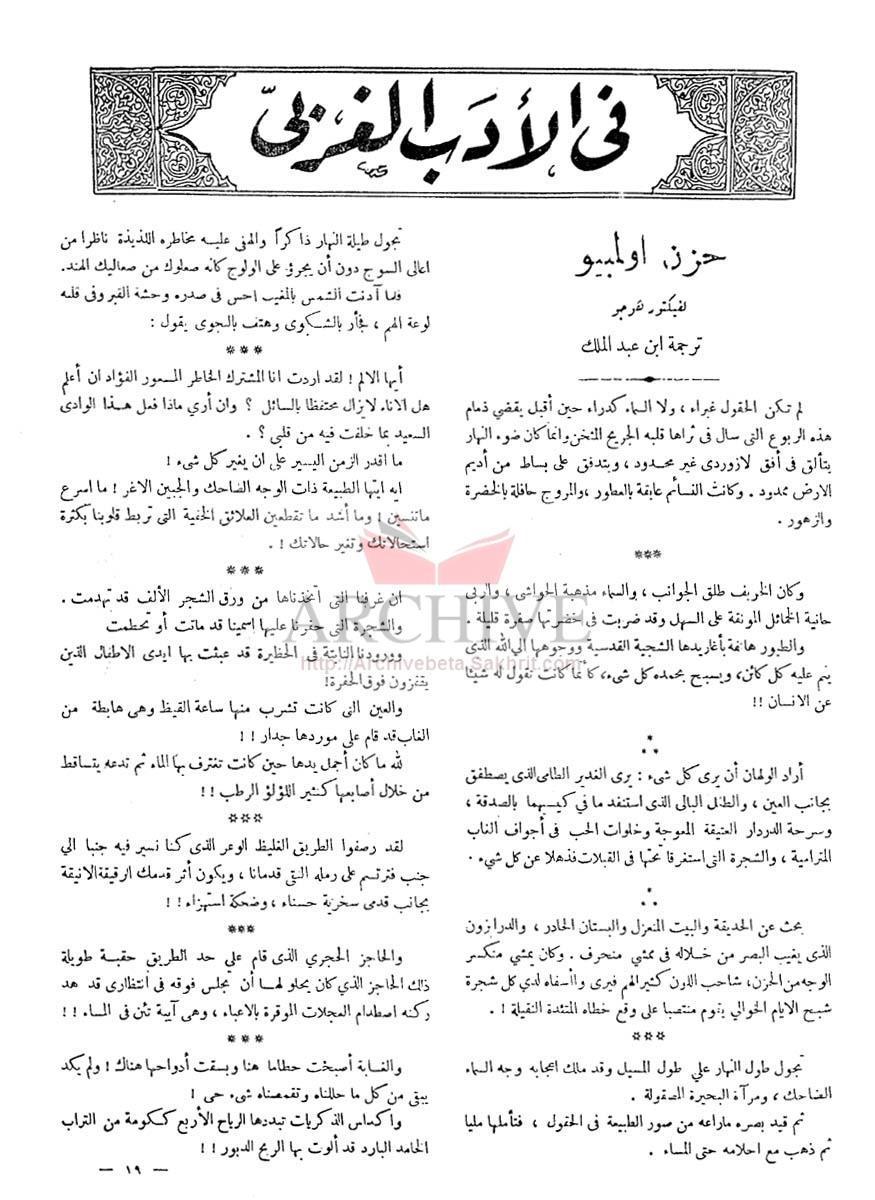 في الأدب الغربي
حزن اولمبيو
لفيكتور هوجو
ترجمة ابن عبد الملك
لم تكن الحقول غبراء ، ولا السماء كدراء حين أقبل يقضي ذمام
هذه الربوع التى سال فى ثراها قلبه الجريح المثخن وانما كان ضوء النهار
يتألق فى أفق لازوردى غير محدود ، ويتدفق على بساط من أديم
الارض ممدود . وكانت النسائم عابقة بالعطور ، والمروج حافلة بالخضرة
والزهور .
***
وكان الخريف طلق الجوانب ، والسماء مذهبة الحواشى ، والربى
حانية الخمائل المونقة على السهل وقد ضربت فى خضرتها صفرة قليلة .
والطيور هاتمة بأغاريدها الشجية القدسية ووجوهها الي الله الذى
ينم عليه كل كائن، ويسبح بحمده كل شىء، كأنما كانت تقول له شيئا
عن الانسان !!
***
أراد الولهان أن يرى كل شىء : يرى الغدير الطامى الذى يصطفق
بجانب العين ، والطلل البالى الذى استنفد ما في كيسهما بالصدقة ،
وسرحة الدردار العتيقة المعوجة وخلوات الحب فى أجواف الغاب
المترامية ، والشجرة التى استغرقا تحتها فى القبلات فذهلا عن كل شيء .
***
بحث عن الحديقة والبيت المنعزل والبستان الحادر ، والدرابزون
الذى يغيب البصر من خلاله فى ممشي منحرف . وكان يمشي منكسر
الوجه من الحزن، شاحب اللون كثير الهم فيرى واأسفاه لدي كل شجرة
شبح الايام الخوالي يقوم منتصبا على وقع خطاه المتئدة الثقيلة ! .
***
تجول طول النهار علي طول المسيل وقد ملك اعجابه وجه السماء
الضاحك ، ومرآة البحيرة المصقولة .
ثم قيد بصره ماراعه من صور الطبيعة فى الحقول ، فتأملها مليا
ثم ذهب مع احلامه حتى المساء .
تجول طيلة النهار ذاكراً والهفى عليه مخاطره اللذيذة ناظرا من
اعالى السوج دون أن يجرؤ على الولوج كانه صعلوك من صعاليك الهند.
فلما آذنت الشمس بالمغيب احس في صدره وحشة القبر وفى قلبه
لوعة الهم ، فجأر بالشكوى وهتف بالجوى يقول :
***
أيها الالم ! لقد اردت انا المشترك الخاطر المسعور الفؤاد ان أعلم
هل الاناء لايزال محتفظا بالسائل ؟ وان أري ماذا فعل هذا الوادى
السعيد بما خلفت فيه من قلبي ؟ .
ما اقدر الزمن اليسير على ان يغير كل شىء !
ايه ايتها الطبيعة ذات الوجه الضاحك والجبين الاغر ! ما اسرع
ماتنسين ! وما أشد ما تقطعين العلائق الخفية التى تربط قلوبنا بكثرة
استحالاتك وتغير حالاتك ! .
***
ان غرفنا التى اتخذناها من ورق الشجر الألف قد تهدمت .
والشجرة التى حفرنا عليها اسمينا قد ماتت أو تحطمت
وورودنا النابتة فى الحظيرة قد عبثت بها ايدى الاطفال الذين
يقفزون فوق الحفرة!
والعين التى كانت تشرب منها ساعة القيظ وهى هابطة من
الغاب قد قام على موردها جدار ! !
لله ما كان أجمل يدها حين كانت تغترف بها الماء ثم تدعه يتساقط
من خلال أصابعها كنثير اللؤلؤ الرطب ! !
***
لقد رصفوا الطريق الغليظ الوعر الذى كنا نسير فيه جنبا الي
جنب فترتسم على رمله التى قدمانا ، ويكون أثر قدمك الرقيقة الانيقة
بجانب قدمى سخرية حسناء ، وضحكة استهزاء ! !
***
والحاجز الحجري الذى قام علي حد الطريق حقبة طويلة
ذاك الحاجز الذي كان يحلو لهما أن تجلس فوقه فى انتظارى قد هد
ركنه اصطدام العجلات الموقرة بالاعباء ، وهى آيبة تئن فى المساء ! !
***
والغابة أصبحت حطاما هنا وبسقت أدواحها هناك ! ولم يكد
يبقى من كل ما حللناه وتقمصناه شىء حى !
واكداس الذكريات تبددها الرياح الأربع ككومة من التراب
الخامد البارد قد ألوت بها الريح الدبور ! !
— ١٩ —
ARCHIVE
http://Archivebeta.Sakhrit.com